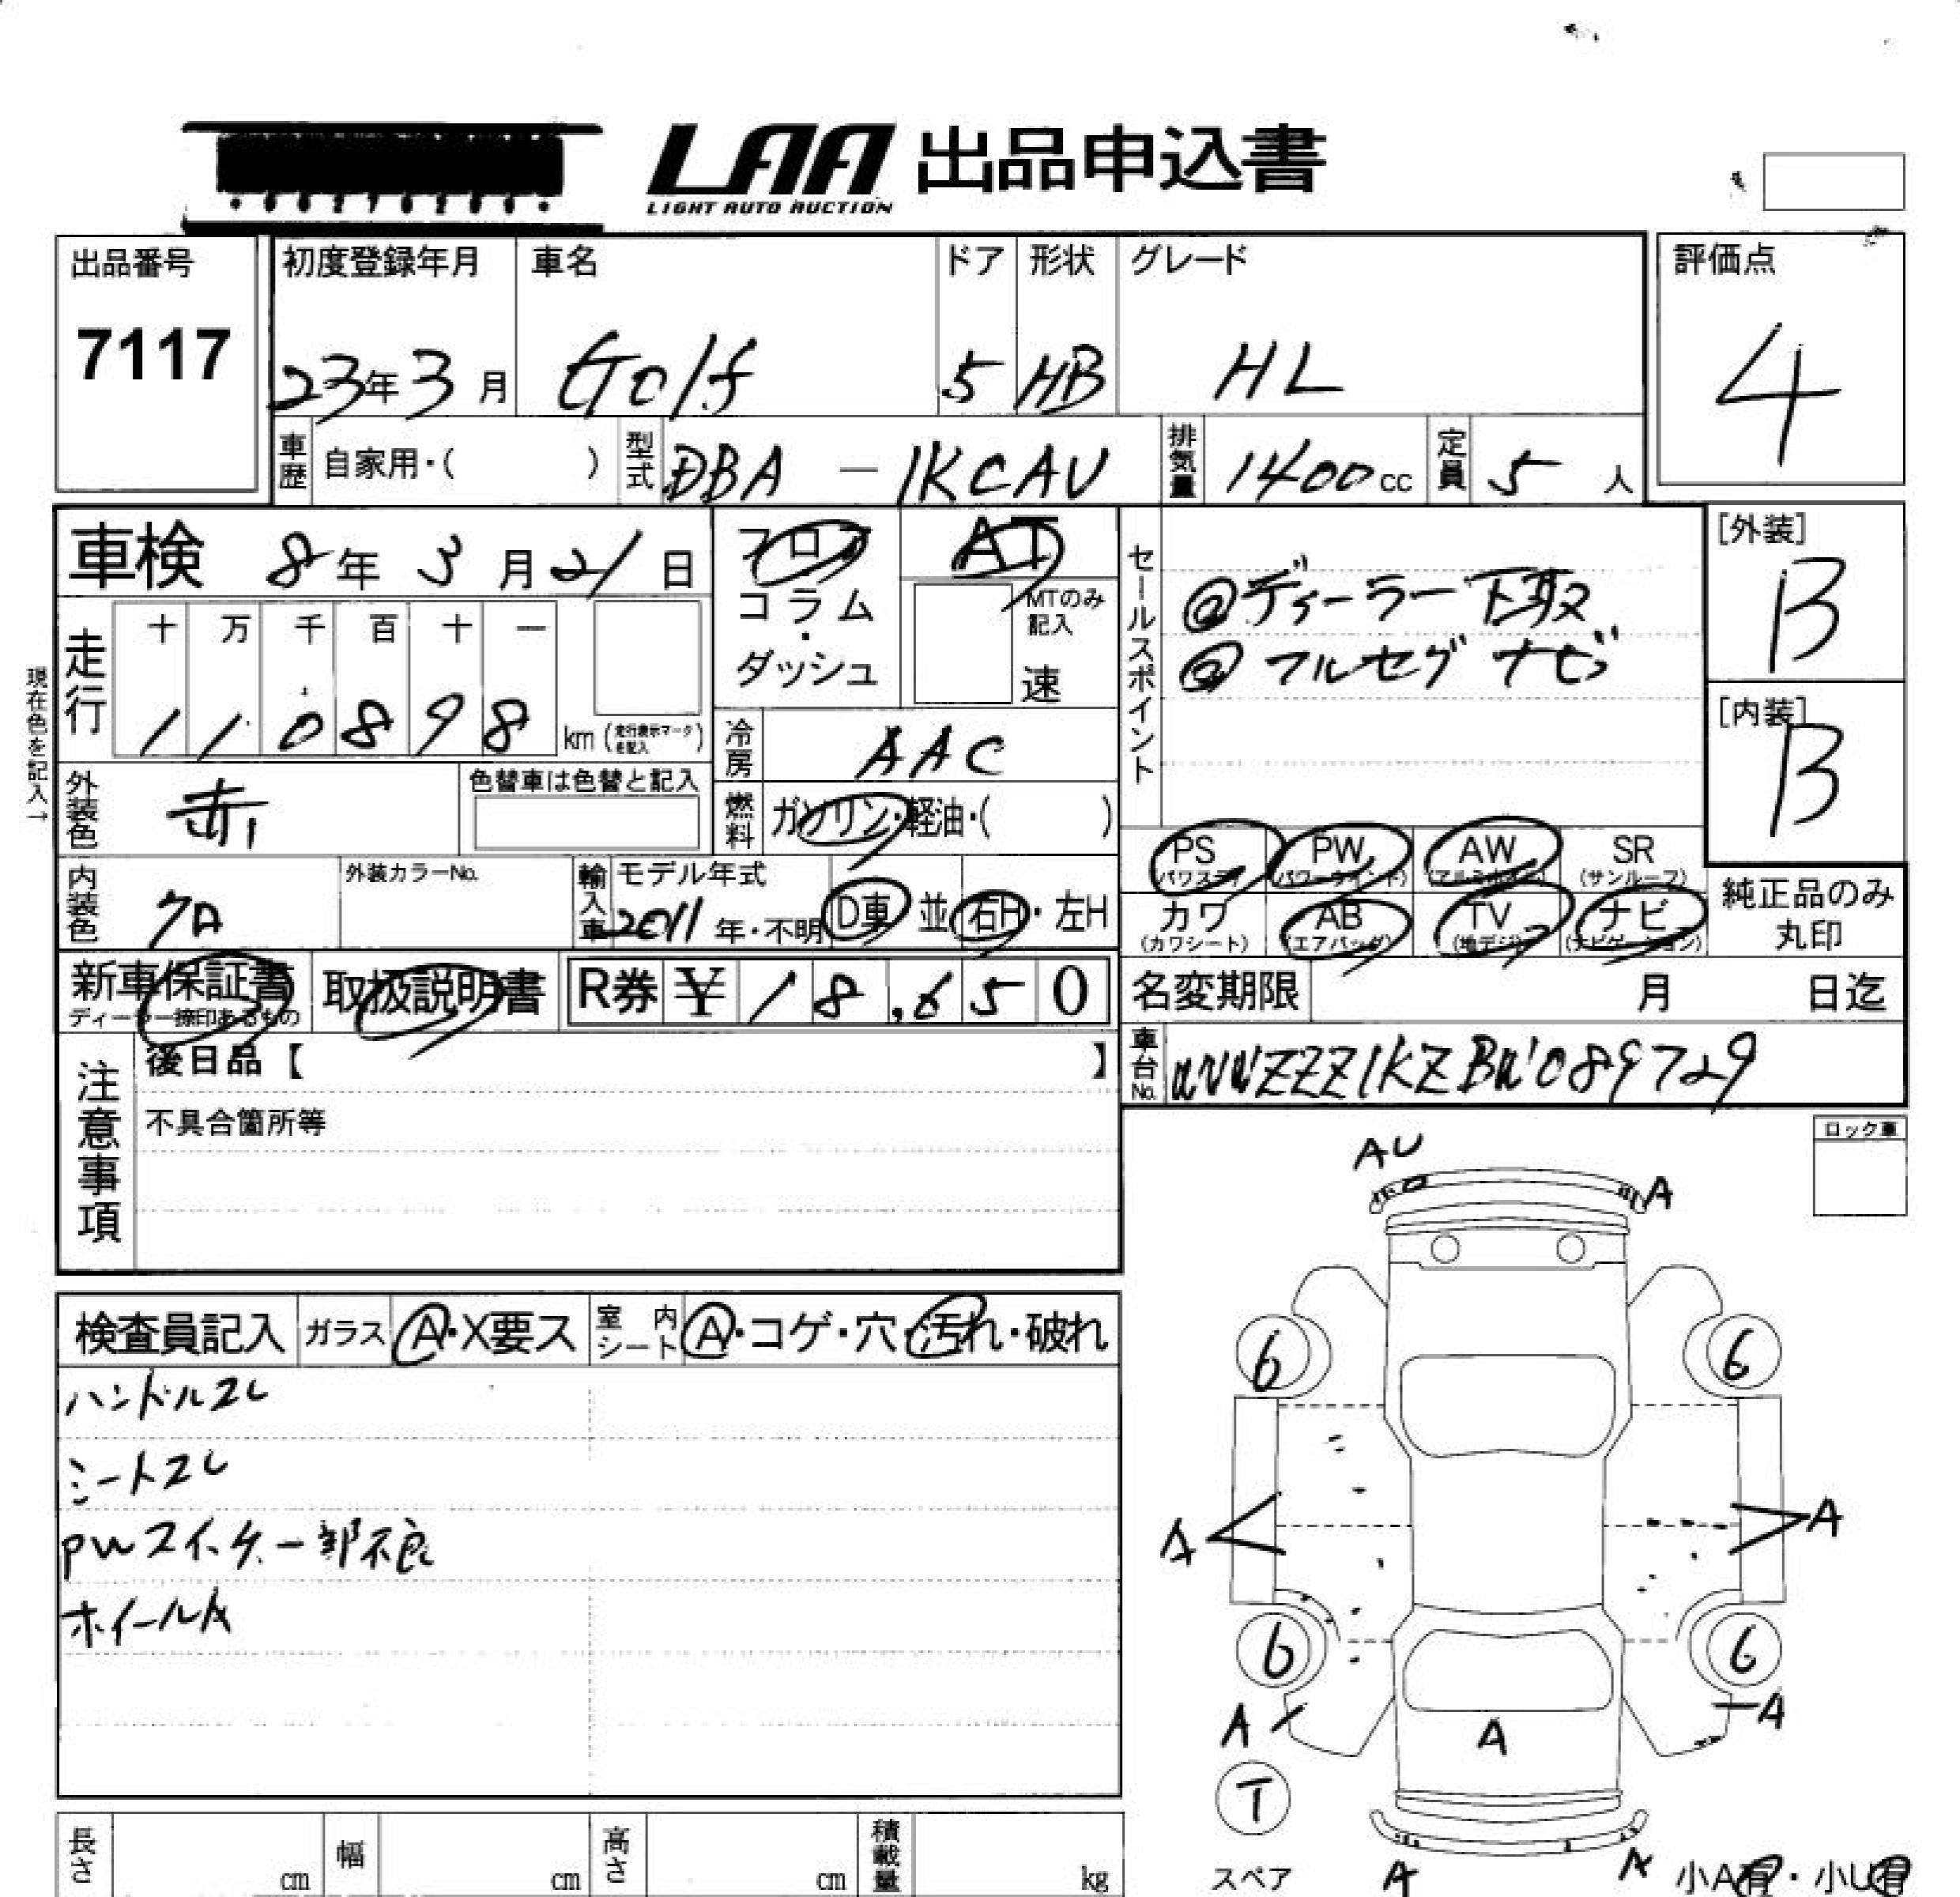 LAA 出品申込書
LIGHT AUTO AUCTION
出品番号 初度登録年月 車名 ドア 形状 グレード 評価点
7117 23年 3月 Golf 5 HB HL 4
車歴 自家用・( ) 型式 DBA - 1KCAV 排気量 1400cc 定員 5人
車検 8年 3月 21日 フロア AT
コラム・ダッシュ MTのみ記入 速
セールスポイント
@ディーラー下取
@フルセグナビ
[外装] B
[内装] B
現在色を記入→
走行 十 万 千 百 十 一
1 1 0 8 9 8 km (走行表示マークを記入)
冷房 AAC
外装色 赤 色替車は色替と記入
燃料 ガソリン・軽油・( )
PS (パワステ) PW (パワーウインド) AW (アルミホイール) SR (サンルーフ)
内装色 クロ 外装カラーNo. 輸入車 モデル年式 2011年・不明 D車 並 右H・左H
カワ (カワシート) AB (エアバッグ) TV (地デジ) ナビ (ナビゲーション)
純正品のみ丸印
新車保証書 ディーラー捺印あるもの 取扱説明書 R券 ¥ 18,650
名変期限 月 日迄
車台No. WVWZZZ1KZBW089729
注意事項
後日品【 】
不具合箇所等
ロック車
検査員記入 ガラス A・X要ス 室内シート A・コゲ・穴・汚れ・破れ
ハンドルスレ
シートスレ
PWスイッチ一部不良
ホイールA
AU
A
6 6
A A
6 6
A A
A
T
スペア
A A 小A有・小U有
長さ cm 幅 cm 高さ cm 積載量 kg